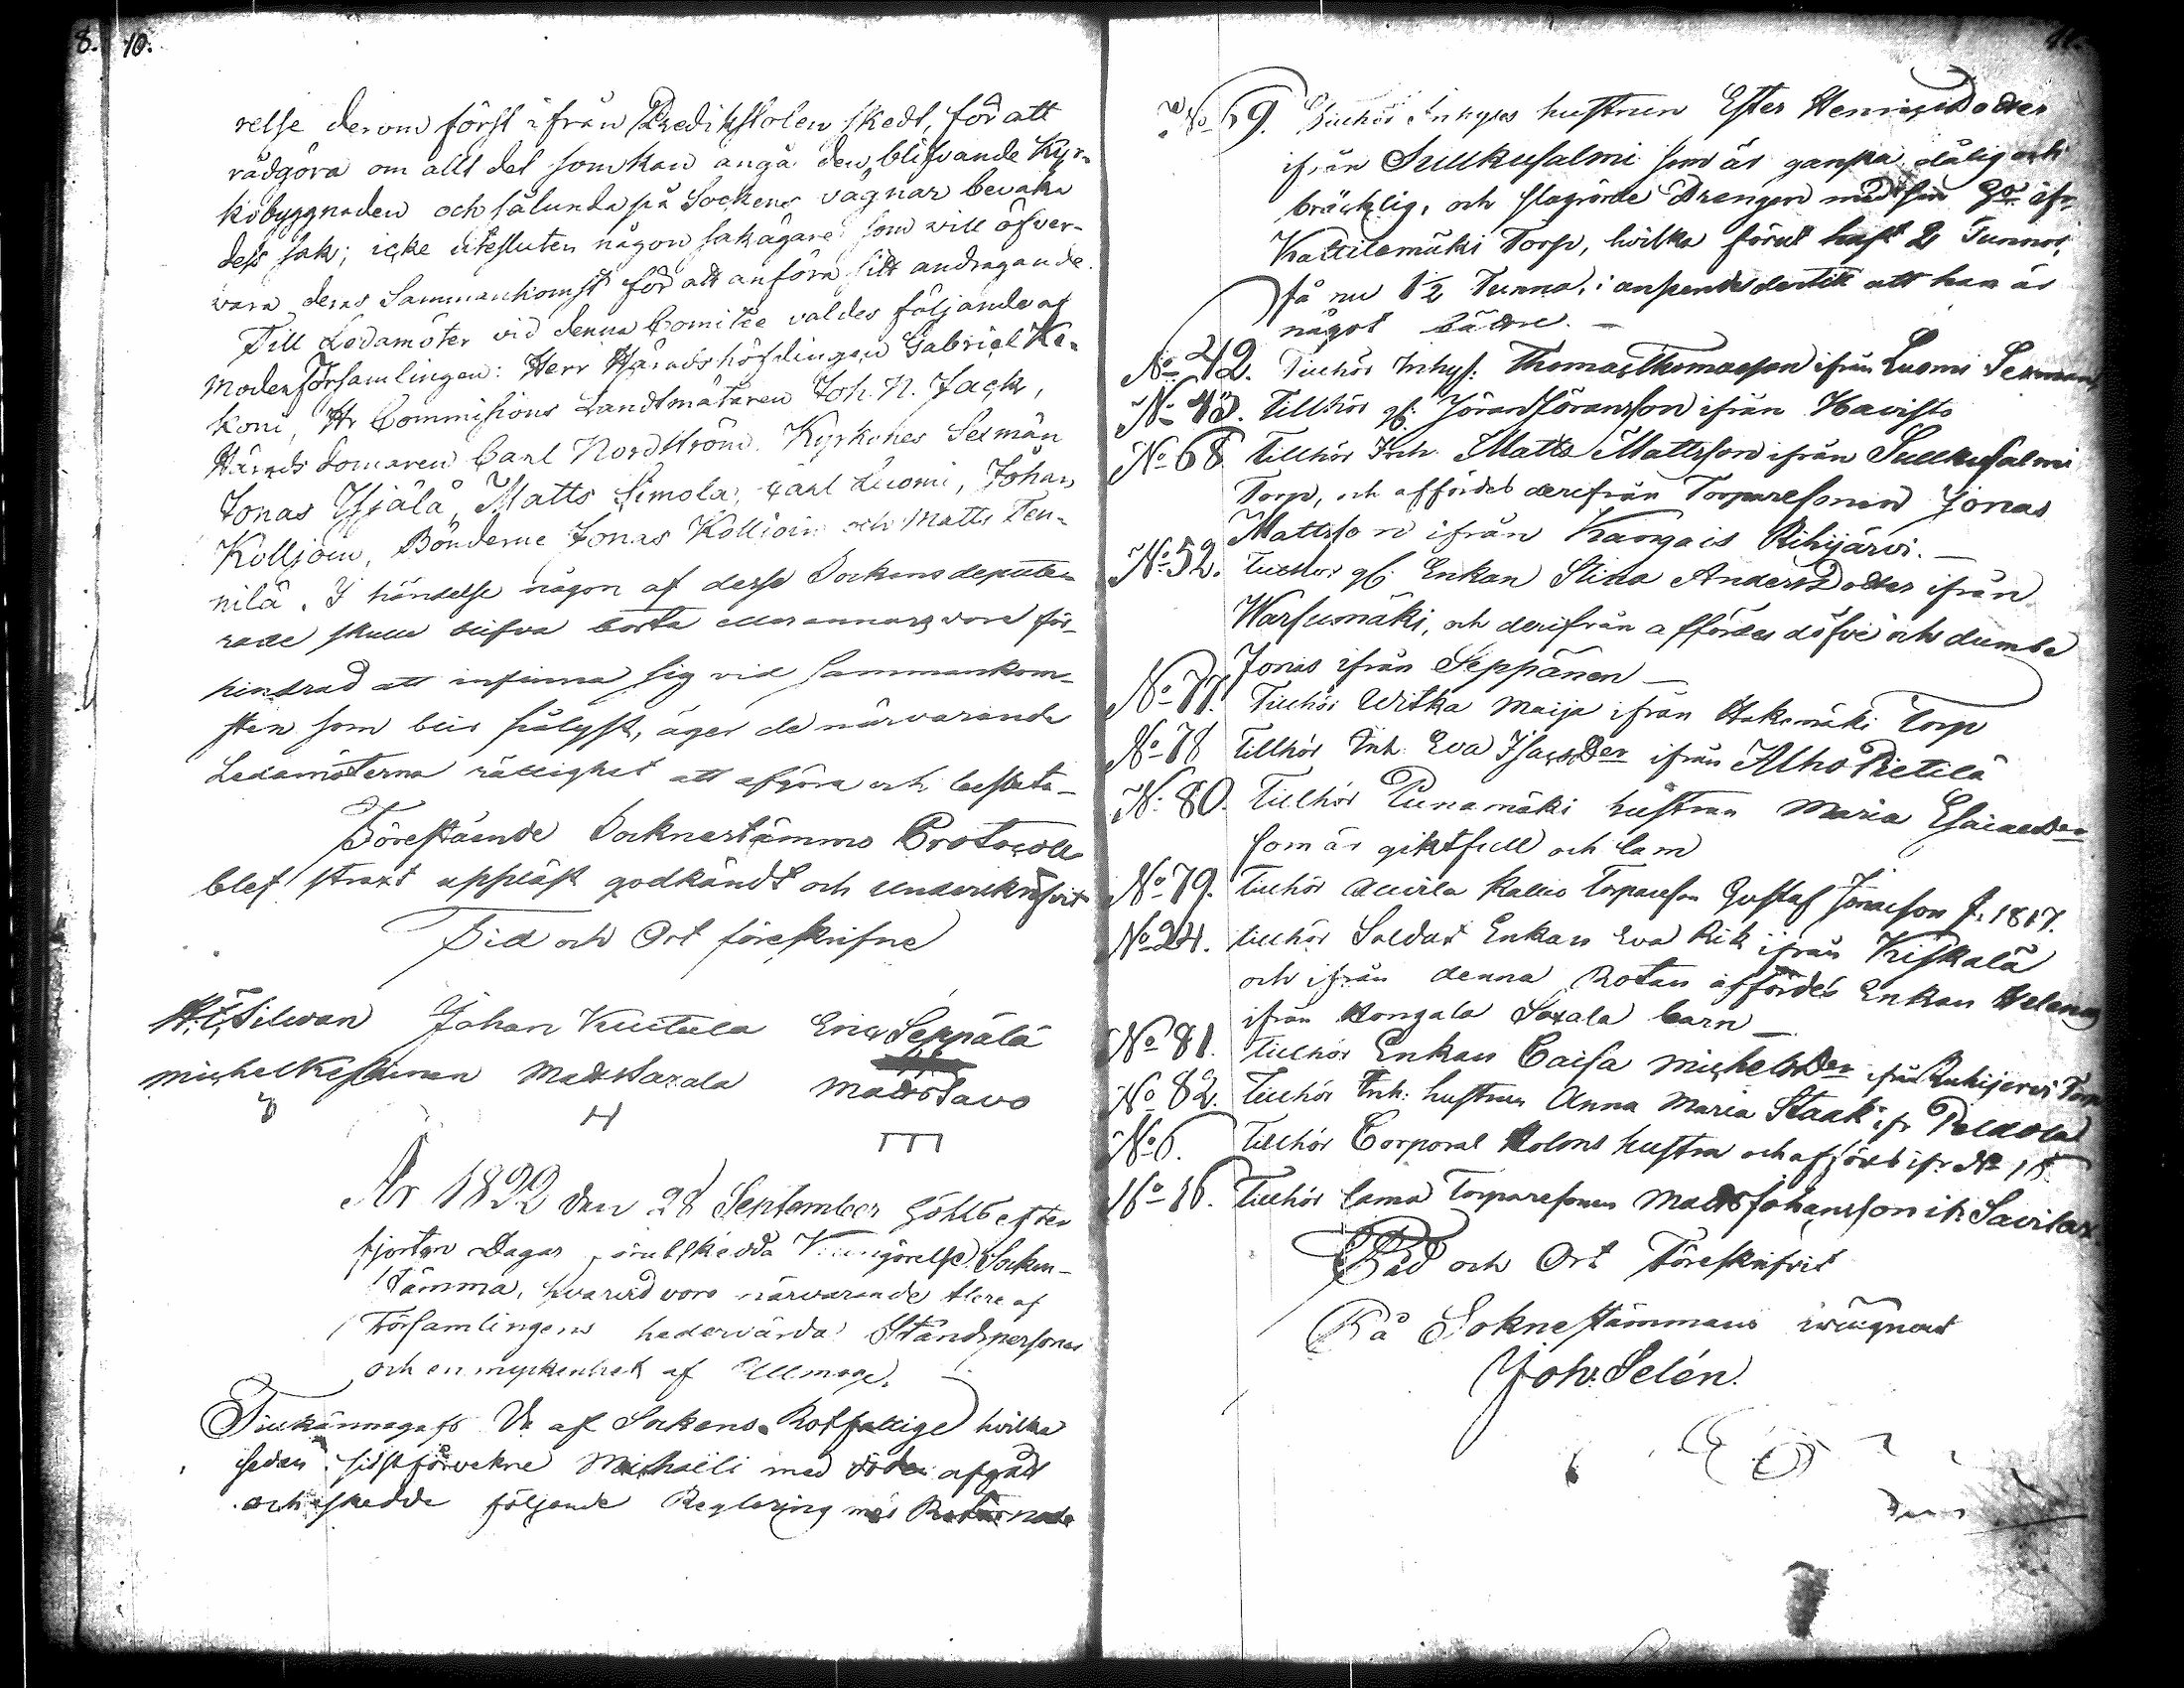 8. 10.
relse derom först ifrån Predikstolen skedt, för att
rådgöra om allt det som kan angå den blifvande Kyr-
kobyggnaden och sålunda på Sockens vägnar bevaka
dess sak; icke utesluten någon sakägare som will öfver-
wara deras Sammankomst för att anföra sitt andragande.
Till Ledamöter vid denna Comitée valdes följande af
Moderförsamlingen: Herr Häradshöfdingen Gabriel Ke-
koni, Hr Commissions Landtmätaren Joh. N. Jack,
Härads domaren Carl Nordström. Kyrkones Sexmän
Jonas Yljälä, Matts Simola, Carl Luomi, Johan
Kolljoin, Bönderne Jonas Kollioin och Matts Ten-
nilä. I händelse någon af desse Sockens depute-
rade skulle blifva borta eller annars vore för-
hindrad att infinna sig vid Sammankom-
sten som blir pålyst, äger de närvarande
Ledamöterna rättighet att afgöra och besluta.
Förestående Socknestämmo Protocoll
blef straxt uppläst godkändt och underskrifvit
Tid och Ort föreskrifne
Silwan Johan Kuitula Eric Seppälä
Michel Keskinen Mats Saxala Mats Savo
År 1822 den 28 September hölts efter
fjorton Dagar förut skedda Kungörelse Socken-
stämma, hvarvid voro närvarande flere af
Församlingens hedervärda Ståndspersoner
och en myckenhet af Allmoge.
Tillkännagafs De af Sockens Rotfattige hvilka
sedan sistförvekne Michaëli med döden afgått
och skedde följande Reglering med Rotarnode
No 69. Tillhör Inhyses hustrun Ester Henricsdotter
ifrån Sulkusalmi som är ganska dålig och
bräcklig, och slagrörde Drengen med sin ifr
Kattilamäki Torp, hvilka förut haft 2 Tunnor,
få nu 1½ Tunna, i anseende dertill att han är
något bättre. –
No 42. Tillhör Inhys: Thomas Thomasson ifrån Luomi
No 43. Tillhör Jöran Jöransson ifrån Havisto
No 68 Tillhör Inh. Matts Mattsson ifrån Sulkusalmi
Torp, och affördes derifrån Torparesonen Jonas
Mattsson ifrån Kangais Rihijärvi. –
No 52. Tillhör Enkan Stina Andersdotter ifrån
Warsumäki, och derifrån affördes döfve och dumbe
Jonas ifrån Seppänen –
No 77. Tillhör Witka Maija ifrån Hakomäki Torp
No 78 Tillhör Inh. Eva Isacs Der ifrån Alho Pietilä
No 80. Tillhör Punamäki hustrun Maria Esaiae Der
som är giktfull och lam
No 79. Tillhör Kallio Torpareson Gustaf Jöransson f. 1817.
No 24. tillhör Soldat Enkan Eva Rik ifrån Kiskalä
och ifrån denna Rotan affördes Enkan Helena
ifrån Hongala Saxala barn –
No 81. Tillhör Enkan Caisa Michels Der ifrån Ruhijervi Torp
No 82. Tillhör Inh: hustrun Anna Maria Staak ifr Peldola
No 6. Tillhör Corporal Holms hustru och afförd ifr No 15.
No 16. Tillhör lama Torparesonen Matts Johansson
Tid och Ort Föreskrifvit
På Soknestämmans wägnar
Joh: Selén.